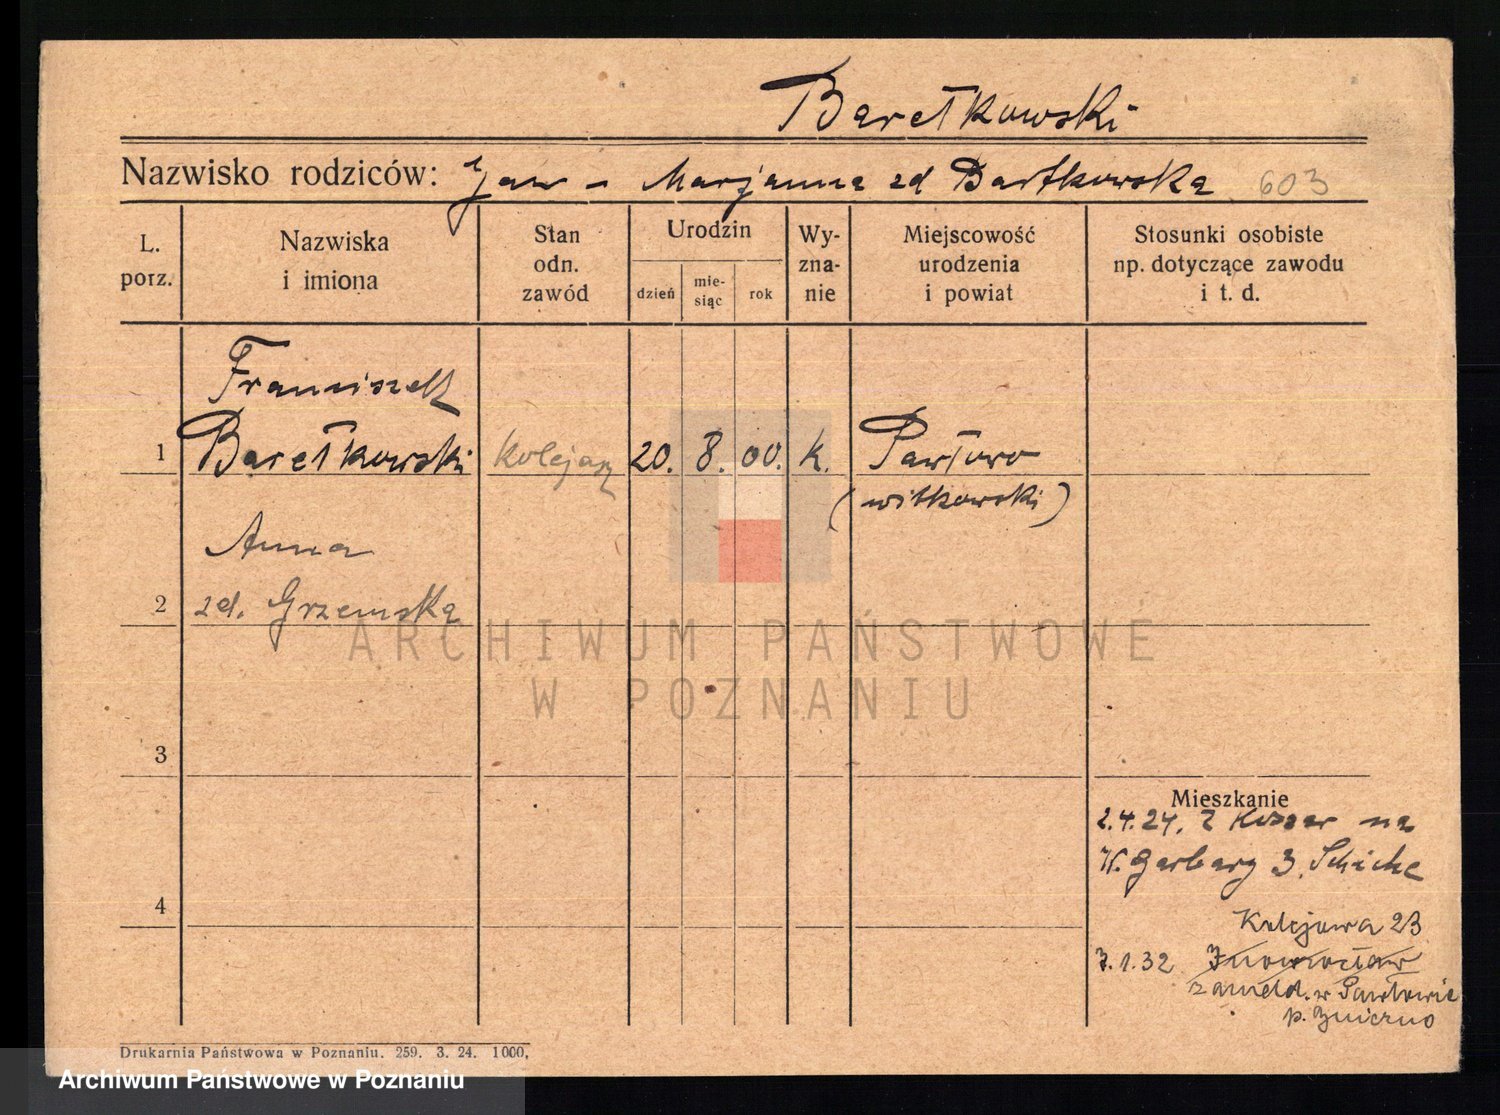 Baretkowski
Nazwisko rodziców: Jan - Marjanna zd Bartkowska 603
L. porz.
Nazwiska i imiona
Stan odn. zawód
Urodzin
dzień
mie-
siąc
rok
Wy-
zna-
nie
Miejscowość
urodzenia
i powiat
Stosunki osobiste
np. dotyczące zawodu
i t. d.
Franciszek
1 Baretkowski kolejarz 20. 8. 00. k. Pawłowo
(witkowski)
Anna
2 zd. Grzemska
ARCHIWUM PAŃSTWOWE
W POZNANIU
3
Mieszkanie
2.4.24. z koszar na
W. Garbary 3. Schicke
4
Kolejowa 23
7.1.32 Inowrocław
zameld. w Pawłowie
p. Gniezno
Drukarnia Państwowa w Poznaniu. 259. 3. 24. 1000,
Archiwum Państwowe w Poznaniu